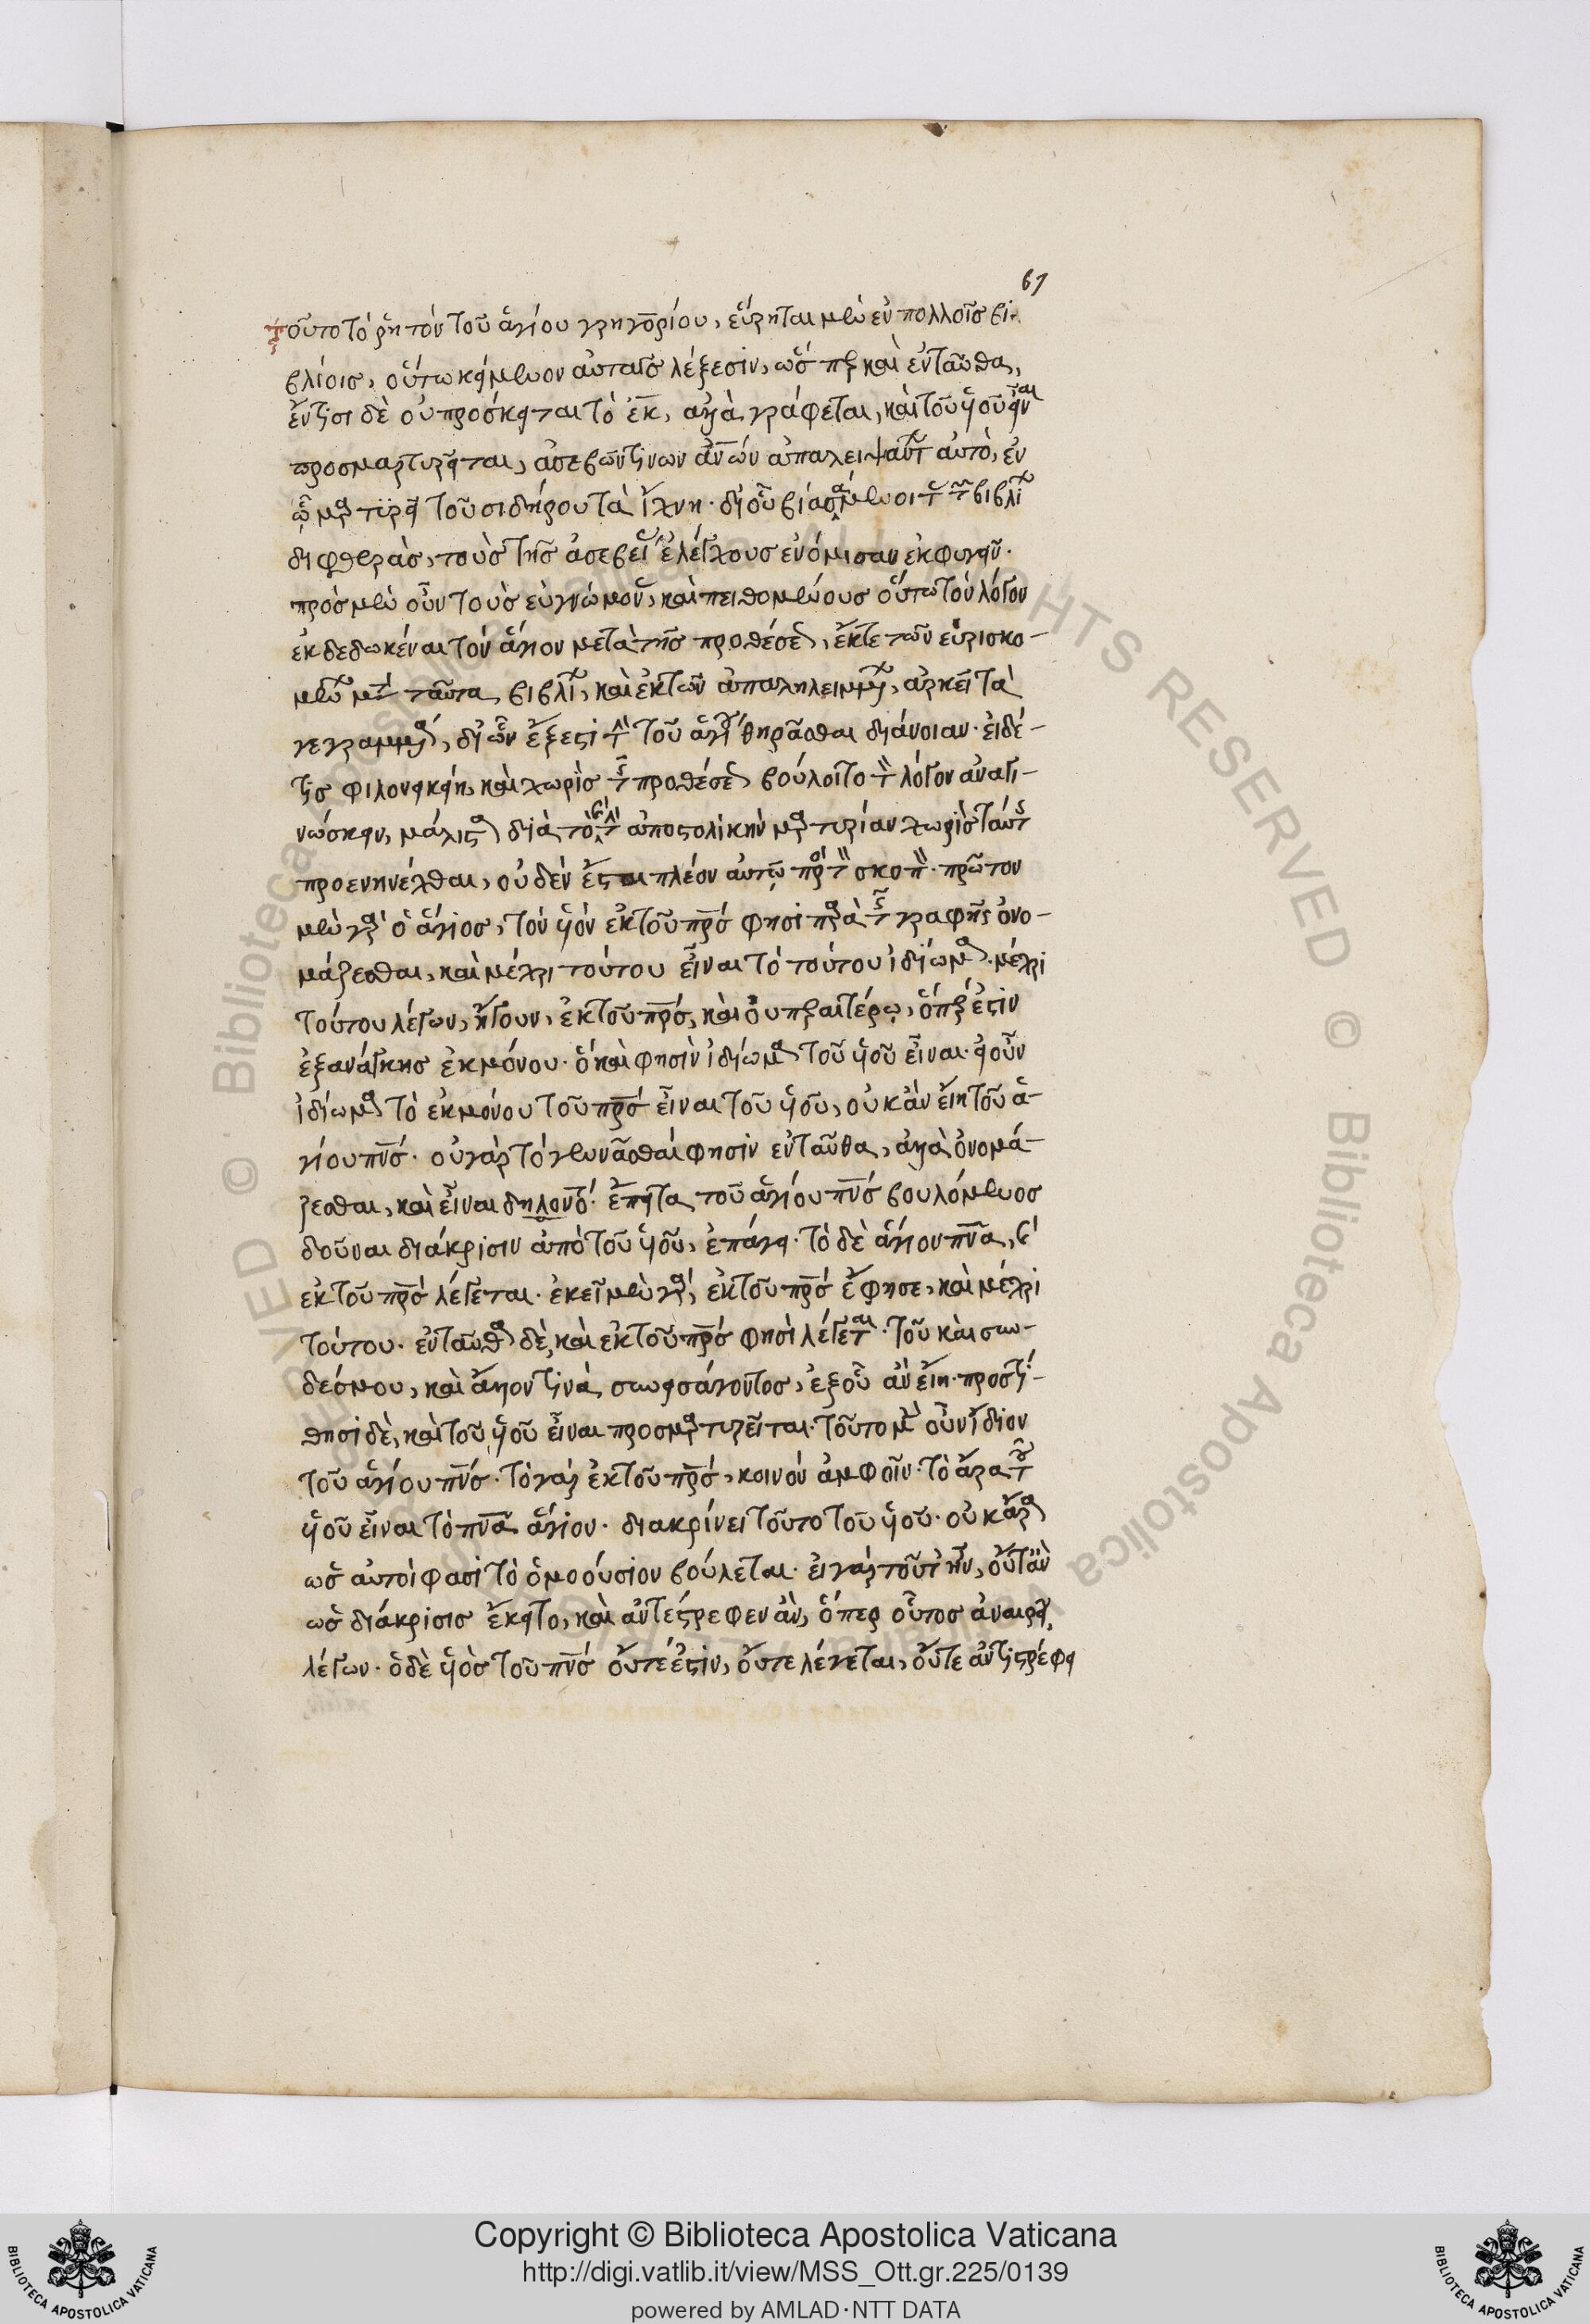 61
τοῦτο τὸ ῥητὸν τοῦ ἁγίου γρηγορίου, εὕρηται μὲν ἐν πολλοῖς βι-
βλίοις, οὕτω κείμενον αὐταῖς λέξεσιν, ὥσπερ καὶ ἐνταῦθα,
ἔν τισι δὲ οὐ πρόσκειται τὸ ἐκ, ἀλλὰ γράφεται, καὶ τοῦ υἱοῦ εἶναι
προσμαρτυρεῖται, ἀσεβῶν τινων ἀνῶν ἀπαλειψάντων αὐτὸ, ἐν
ᾧ μαρτυρεῖ τοῦ σιδήρου τὰ ἴχνη· δι οὗ βιασάμενοι τὰς τῶν βιβλίων
διφθερὰς, τοὺς τῆς ἀσεβείας ἐλέγχους ἐνόμισαν ἐκφυγεῖν·
πρὸς μὲν οὖν τοὺς εὐγνώμονας, καὶ πειθομένους οὕτω τὸν λόγον
ἐκδεδωκέναι τὸν ἅγιον μετὰ τῆς προθέσεως, ἔκ τε τῶν εὑρισκο-
μένων μετὰ ταῦτα βιβλίων, καὶ ἐκ τῶν ἀπαληλειμμένων, ἀρκεῖ τὰ
γεγραμμένα, δι ὧν ἔξεστι τὴν τοῦ ἁγίου θηρᾶσθαι διάνοιαν· εἰ δέ
τις φιλονεικείη, καὶ χωρὶς τῆς προθέσεως βούλοιτο τὸν λόγον ἀναγι-
νώσκειν, μάλιστα διὰ τὸ καὶ τὴν ἀποστολικὴν μαρτυρίαν χωρὶς ταύτης
προενηνέχθαι, οὐδὲν ἔσται πλέον αὐτῷ πρὸς τὸν σκοπόν· πρῶτον
μὲν γὰρ ὁ ἅγιος, τὸν υἱὸν ἐκ τοῦ πρς φησὶ παρὰ τῆς γραφῆς ὀνο-
μάζεσθαι, καὶ μέχρι τούτου εἶναι τὸ τούτου ἰδίωμα· μέχρι
τούτου λέγων, ἤγουν, ἐκ τοῦ πρς, καὶ οὐ περαιτέρω, ὅπερ ἐστὶν
ἐξ ἀνάγκης ἐκ μόνου· ὃ καὶ φησὶν ἰδίωμα τοῦ υἱοῦ εἶναι· εἰ οὖν
ἰδίωμα τὸ ἐκ μόνου τοῦ πρς εἶναι τοῦ υἱοῦ, οὐκ ἂν εἴη τοῦ ἁ-
γίου πνς· οὐ γὰρ τὸ γεννᾶσθαί φησιν ἐνταῦθα, ἀλλὰ ὀνομά-
ζεσθαι, καὶ εἶναι δηλονότι· ἔπειτα τοῦ ἁγίου πνς βουλόμενος
δοῦναι διάκρισιν ἀπὸ τοῦ υἱοῦ, ἐπάγει· τὸ δὲ ἅγιον πνα, καὶ
ἐκ τοῦ πρς λέγεται· ἐκεῖ μὲν γὰρ, ἐκ τοῦ πρς ἔφησε, καὶ μέχρι
τούτου· ἐνταῦθα δὲ, καὶ ἐκ τοῦ πρς φησὶ λέγεται· τοῦ καὶ συν-
δέσμου, καὶ ἄλλον τινὰ συνεισάγοντος, ἐξ οὗ ἂν εἴη· προστί-
θησι δὲ, καὶ τοῦ υἱοῦ εἶναι προσμαρτυρεῖται· τοῦτο μὲν οὖν ἴδιον
τοῦ ἁγίου πνς· τὸ γὰρ ἐκ τοῦ πρς, κοινὸν ἀμφοῖν· τὸ ἄρα τοῦ
υἱοῦ εἶναι τὸ πνα ἅγιον· διακρίνει τοῦτο τοῦ υἱοῦ· οὐκ ἄρα
ὡς αὐτοί φασὶ τὸ ὁμοούσιον βούλεται· εἰ γὰρ τοῦτ ἦν, οὔτ ἂν
ὡς διάκρισις ἔκειτο, καὶ ἀντέστρεφεν ἂν, ὅπερ οὗτος ἀναιρεῖ,
λέγων· ὁ δὲ υἱὸς τοῦ πνς οὔτέ ἐστιν, οὔτε λέγεται, οὔτε ἀντιστρέφει
Copyright © Biblioteca Apostolica Vaticana
http://digi.vatlib.it/view/MSS_Ott.gr.225/0139
powered by AMLAD·NTT DATA